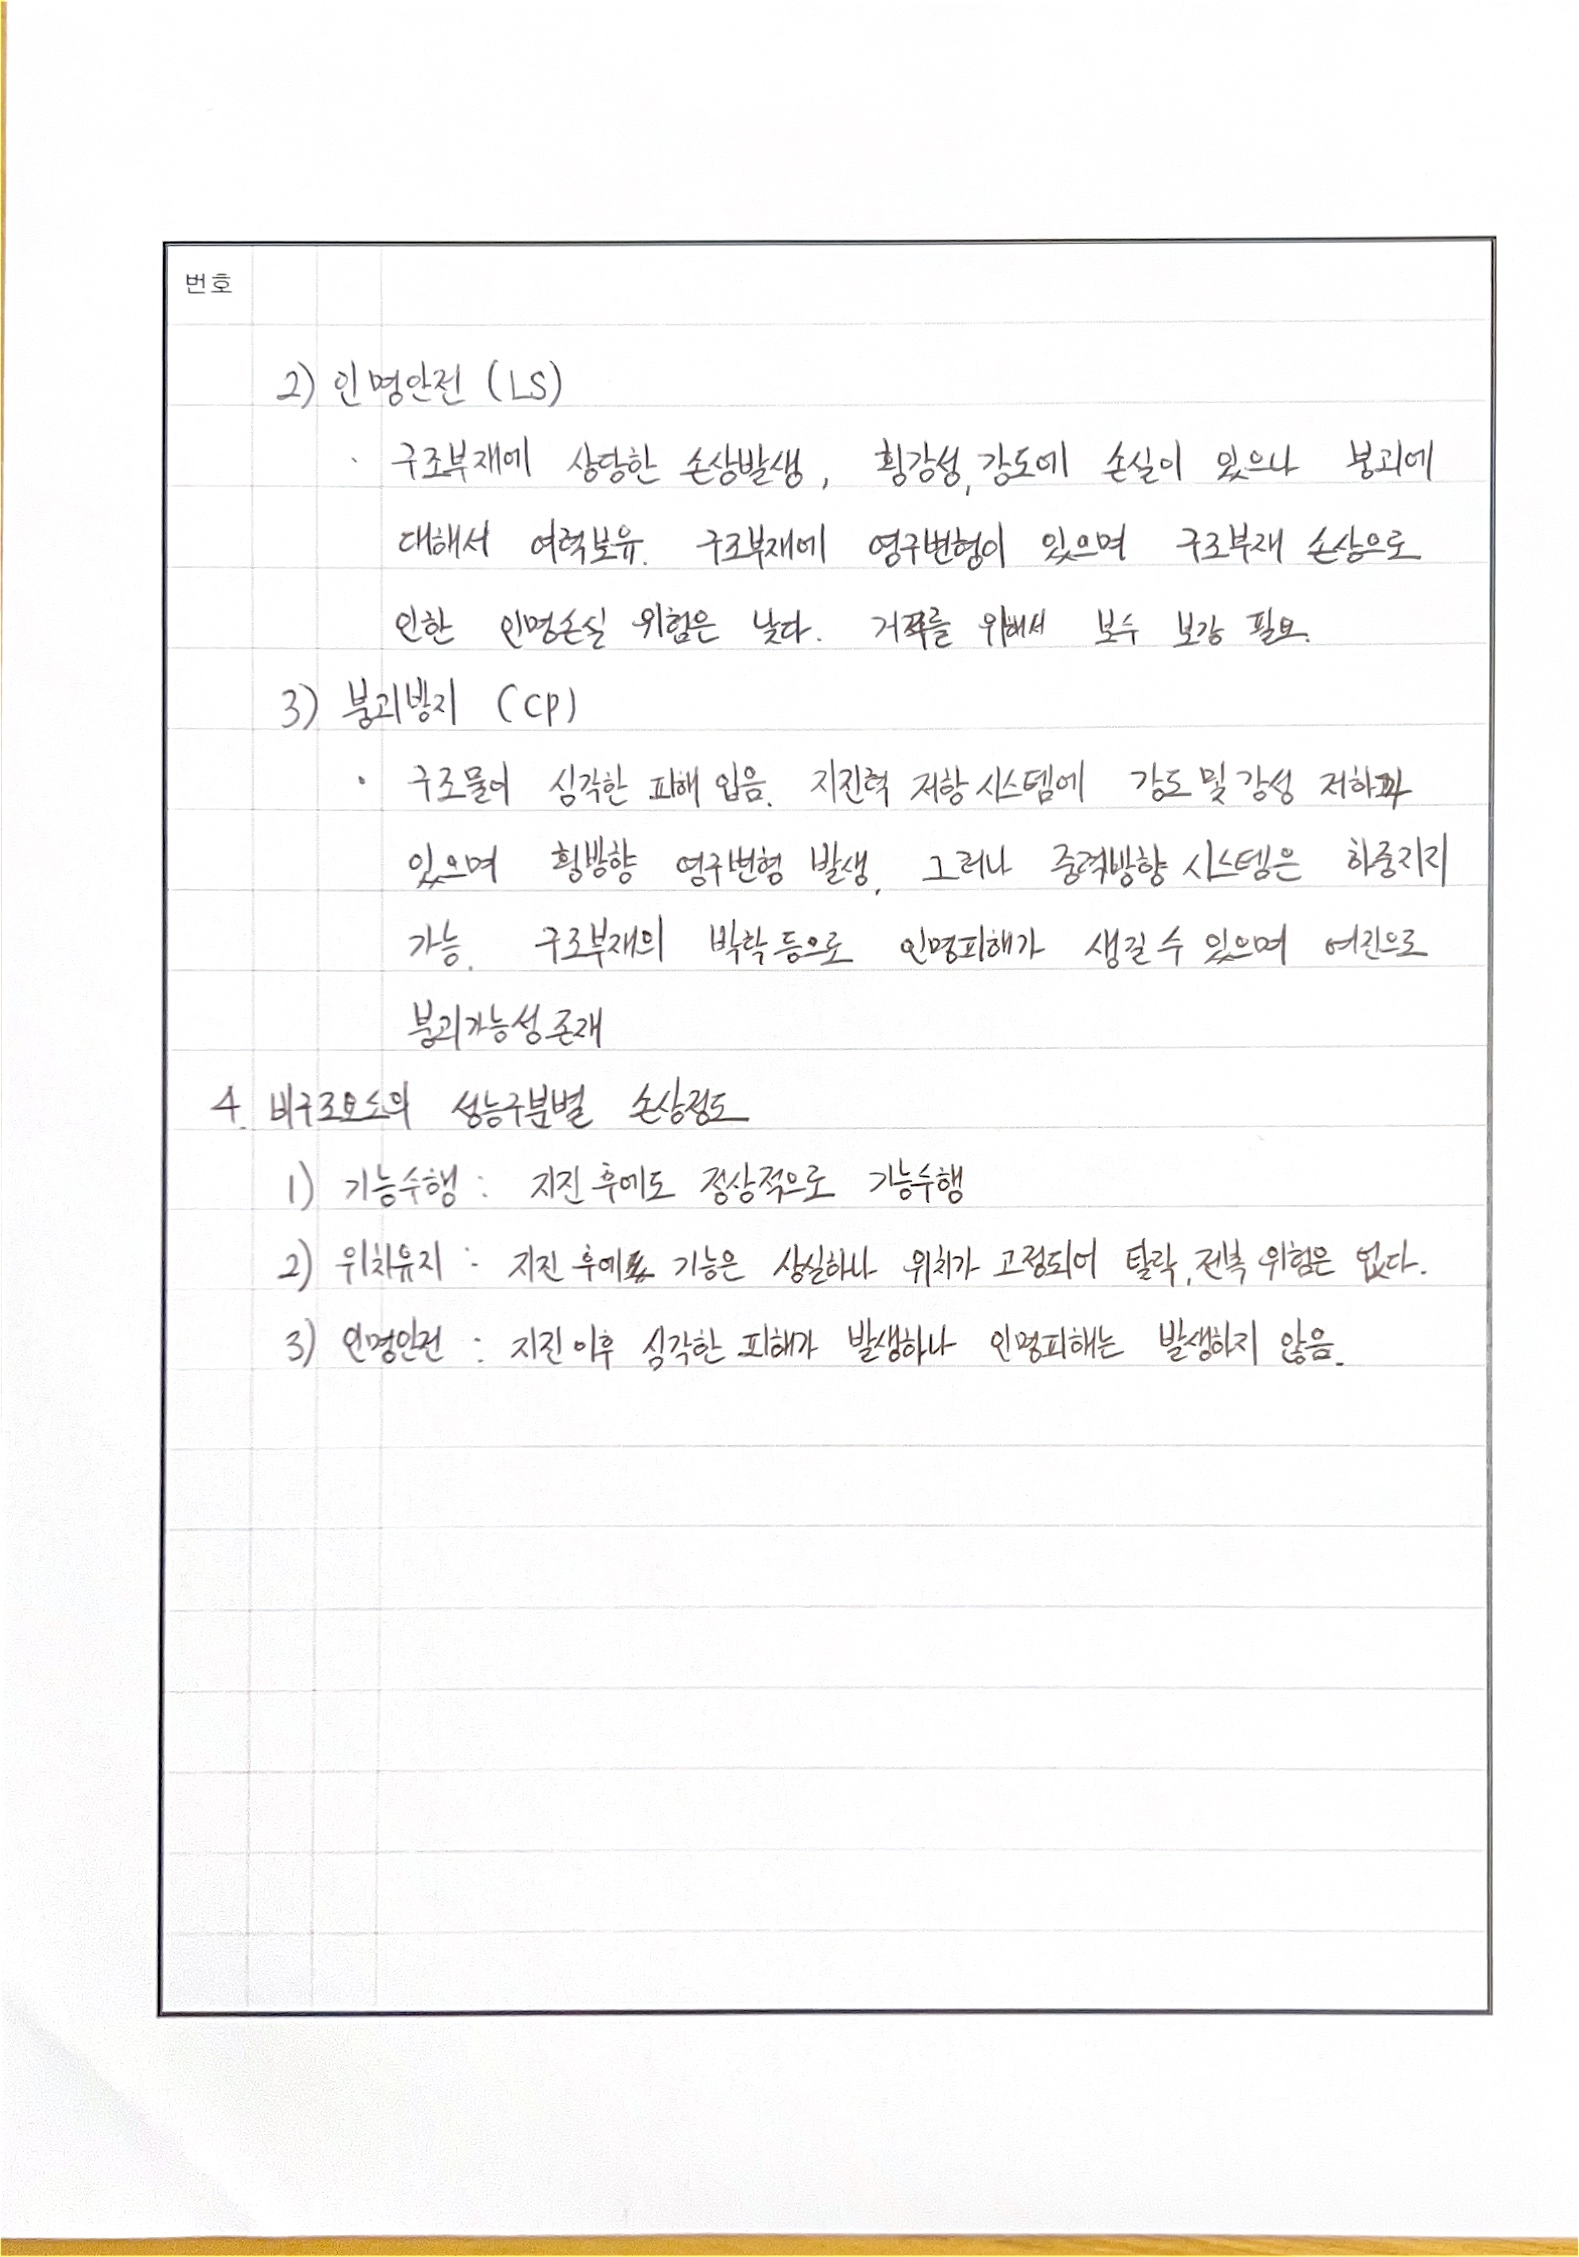 번호
2) 인명안전 (LS)
· 구조부재에 상당한 손상발생, 횡강성, 강도에 손실이 있으나 붕괴에
대해서 여력보유. 구조부재에 영구변형이 있으며 구조부재 손상으로
인한 인명손실 위험은 낮다. 거주를 위해서 보수 보강 필요.
3) 붕괴방지 (CP)
· 구조물이 심각한 피해 입음. 지진력 저항 시스템에 강도 및 강성 저하가
있으며 횡방향 영구변형 발생, 그러나 중력방향 시스템은 하중지지
가능. 구조부재의 박락 등으로 인명피해가 생길 수 있으며 여진으로
붕괴가능성 존재
4. 비구조요소의 성능구분별 손상정도
1) 기능수행 : 지진 후에도 정상적으로 기능수행
2) 위치유지 : 지진 후에 기능은 상실하나 위치가 고정되어 탈락, 전복 위험은 없다.
3) 인명안전 : 지진 이후 심각한 피해가 발생하나 인명피해는 발생하지 않음.